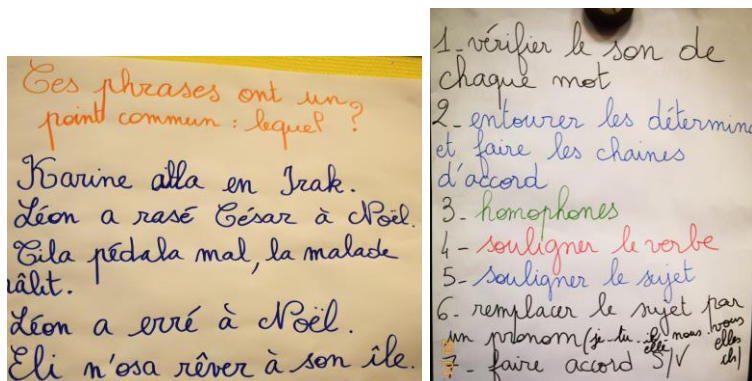 Ces phrases ont un
point commun : lequel ?
Karine alla en Irak.
Léon a rasé César à Noël.
Tila pédala mal, la malade
râlit.
Léon a erré à Noël.
Eli n'osa rêver à son île.
1_ vérifier le son de
chaque mot
2_ entourer les détermin
et faire les chaines
d'accord
3_ homophones
4_ souligner le verbe
5_ souligner le sujet
6_ remplacer le sujet par
un pronom (je..tu..il..nous..vous
elle elles
7_ faire accord S/V ch)